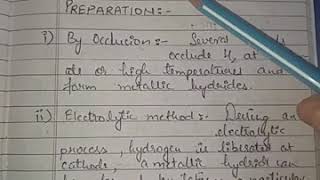 PREPARATION:-
i) By Occlusion :- Several
occlude H2 at
or high temperatures and
form metallic hydrides.
ii) Electrolytic method:- During an
electrolytic
process, hydrogen is liberated at
cathode, a metallic hydride can